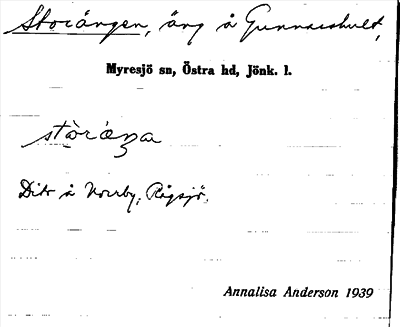 Storängen, äng å Gunnarshult,
Myresjö sn, Östra hd, Jönk. l.
Dito å Norrby, Rågsjö.
Annalisa Anderson 1939